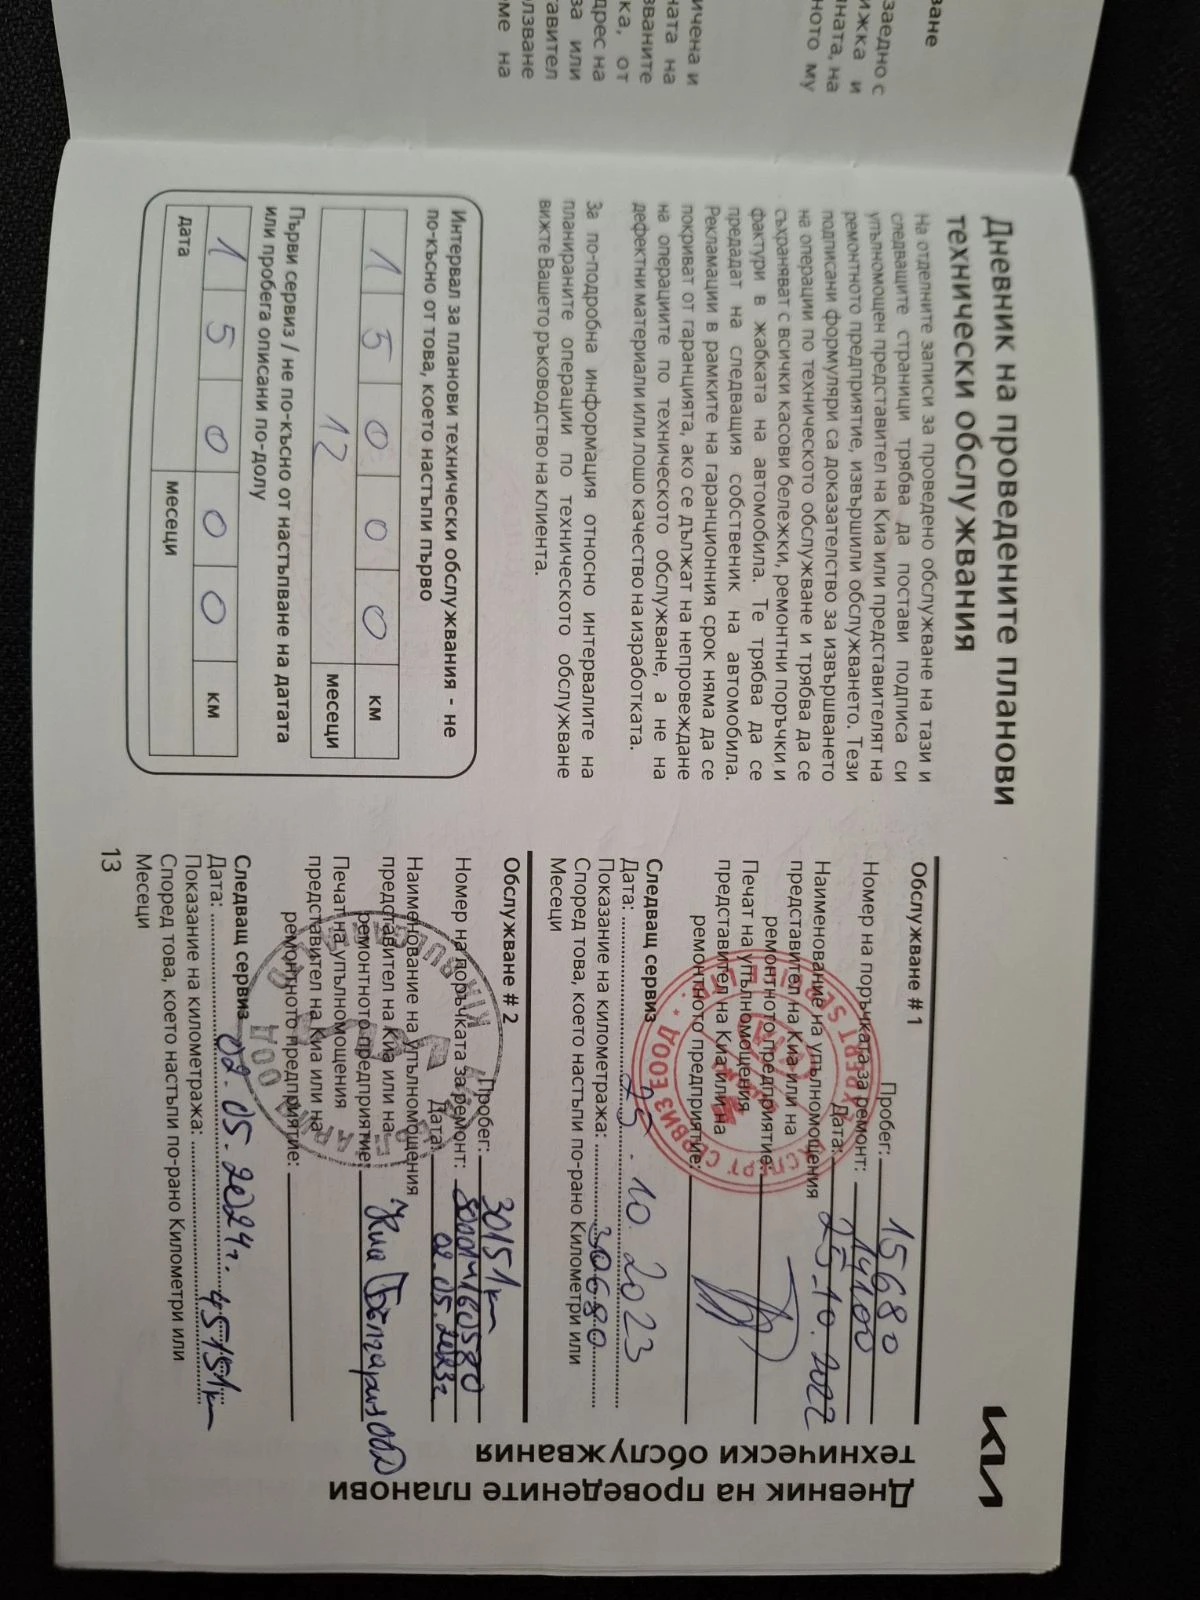 ване
заедно с
ижка и
ната, на
ното му
ичена и
ната на
званите
ка, от
дрес на
за или
тавител
лзване
ме на
Дневник на проведените планови
технически обслужвания
На отделните записи за проведено обслужване на тази и
следващите страници трябва да постави подписа си
упълномощен представител на Киа или представителят на
ремонтното предприятие, извършили обслужването. Тези
подписани формуляри са доказателство за извършването
на операции по техническото обслужване и трябва да се
съхраняват с всички касови бележки, ремонтни поръчки и
фактури в жабката на автомобила. Те трябва да се
предадат на следващия собственик на автомобила.
Рекламации в рамките на гаранционния срок няма да се
покриват от гаранцията, ако се дължат на непровеждане
на операциите по техническото обслужване, а не на
дефектни материали или лошо качество на изработката.
За по-подробна информация относно интервалите на
планираните операции по техническото обслужване
вижте Вашето ръководство на клиента.
Интервал за планови технически обслужвания - не
по-късно от това, което настъпи първо
1 5 0 0 0 км
12 месеци
Първи сервиз / не по-късно от настъпване на датата
или пробега описани по-долу
1 5 0 0 0 км
дата месеци
Обслужване # 1
Пробег: 15680
Номер на поръчката за ремонт: 14100
Дата: 25.10.2022
Наименование на упълномощения
представител на Киа или на
ремонтното предприятие:
Печат на упълномощения
представител на Киа или на
ремонтното предприятие:
ЕКСПЕРТ СЕРВИЗ ЕООД
EXPERT SERVICE LTD.
Следващ сервиз
Дата: 25.10.2023
Показание на километража: 30680
Според това, което настъпи по-рано Километри или
Месеци
Обслужване # 2
Пробег: 30151 km
Номер на поръчката за ремонт:
Дата: 02.05.2023г.
Наименование на упълномощения
представител на Киа или на
ремонтното предприятие: Киа България ООД
Печат на упълномощения
представител на Киа или на
ремонтното предприятие:
Следващ сервиз
Дата: 02.05.2024г.
Показание на километража: 45151 km
Според това, което настъпи по-рано Километри или
Месеци
13
KIA
Дневник на проведените планови
технически обслужвания